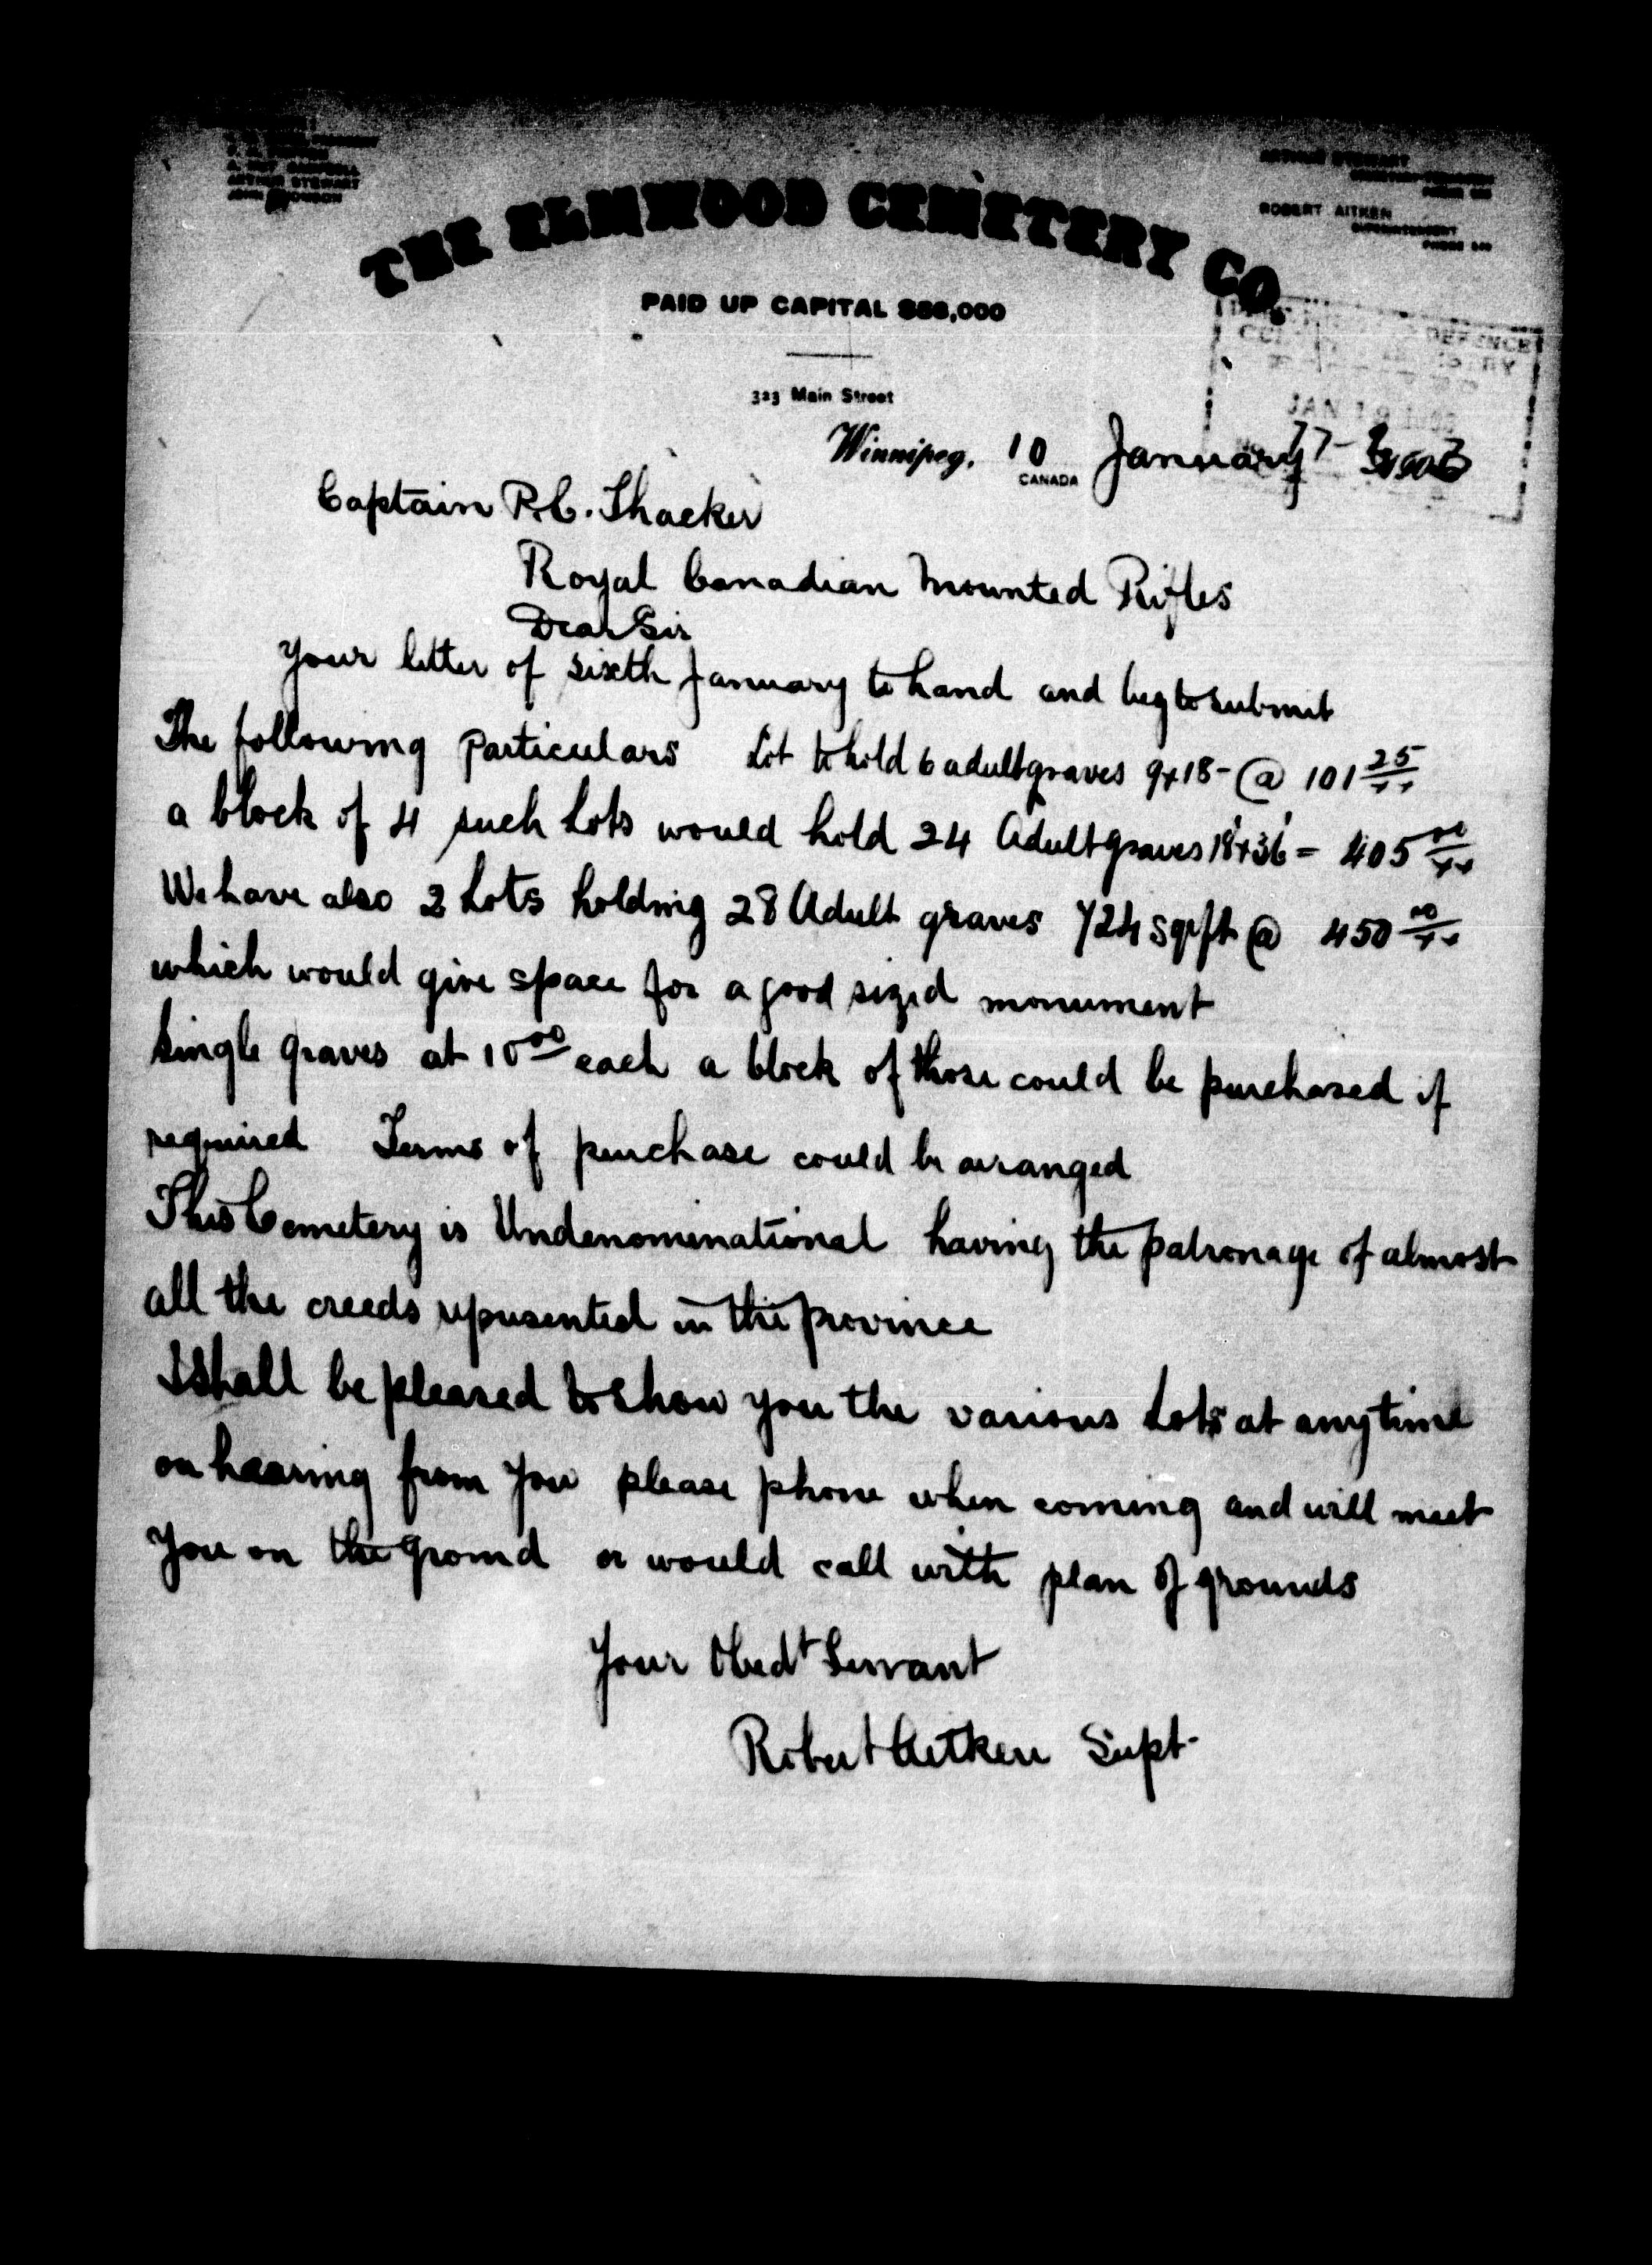 ARTHUR STEWART
ROBERT AITKEN
SUPERINTENDENT
THE ELMWOOD CEMETERY CO.
PAID UP CAPITAL
323 Main Street
DEFENCE
JAN 19
Winnipeg, 10 January
CANADA
Captain P.C. Thacker
Royal Canadian Mounted Rifles
Dear Sir
Your letter of sixth January to hand and beg to submit
The following particulars Lot to hold 6 adult graves 9x18- @ 101 25/xx
a block of 4 such Lots would hold 24 Adult graves 18'x36' = 405 00/xx
We have also 2 Lots holding 28 Adult graves 724 sqr ft @ 450 00/xx
which would give space for a good sized monument
Single graves at 10 00 each a block of those could be purchased if
required Terms of purchase could be arranged
This Cemetery is Undenominational having the patronage of almost
all the creeds represented in the province
I Shall be pleased to Show you the various Lots at any time
on hearing from you please phone when coming and will meet
You on the ground or would call with plan of grounds
Your Obedt Servant
Robert Aitken Supt-